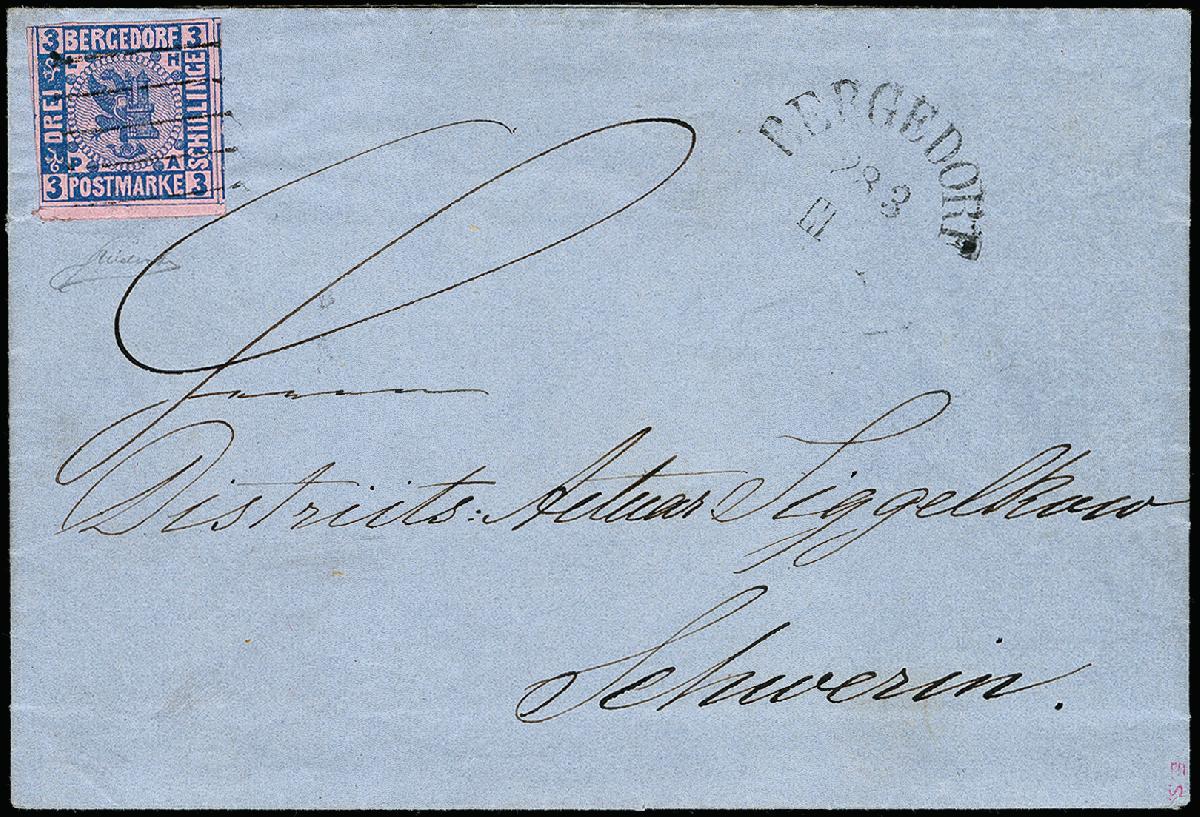 3 BERGEDORF 3
L H
DREI
SCHILLINGE
P A
3 POSTMARKE 3
BERGEDORF
28 3
III
Herrn
Districts-Actuar Siggelkow
Schwerin.
S E